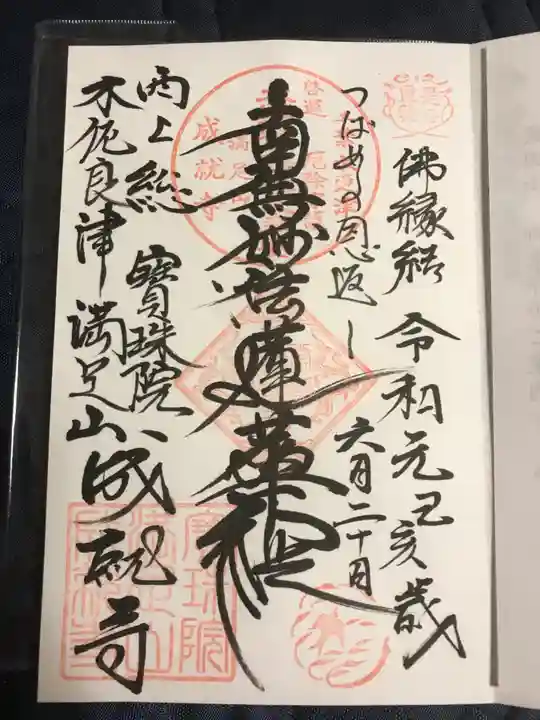 佛縁結 令和元己亥歳
つばめの恩返し 六月二十日
南無妙法蓮華経
西上総 寳珠院
木佐良津 満足山 成就寺
成就寺